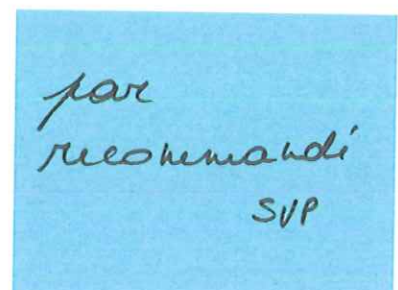 par
recommandé
SVP